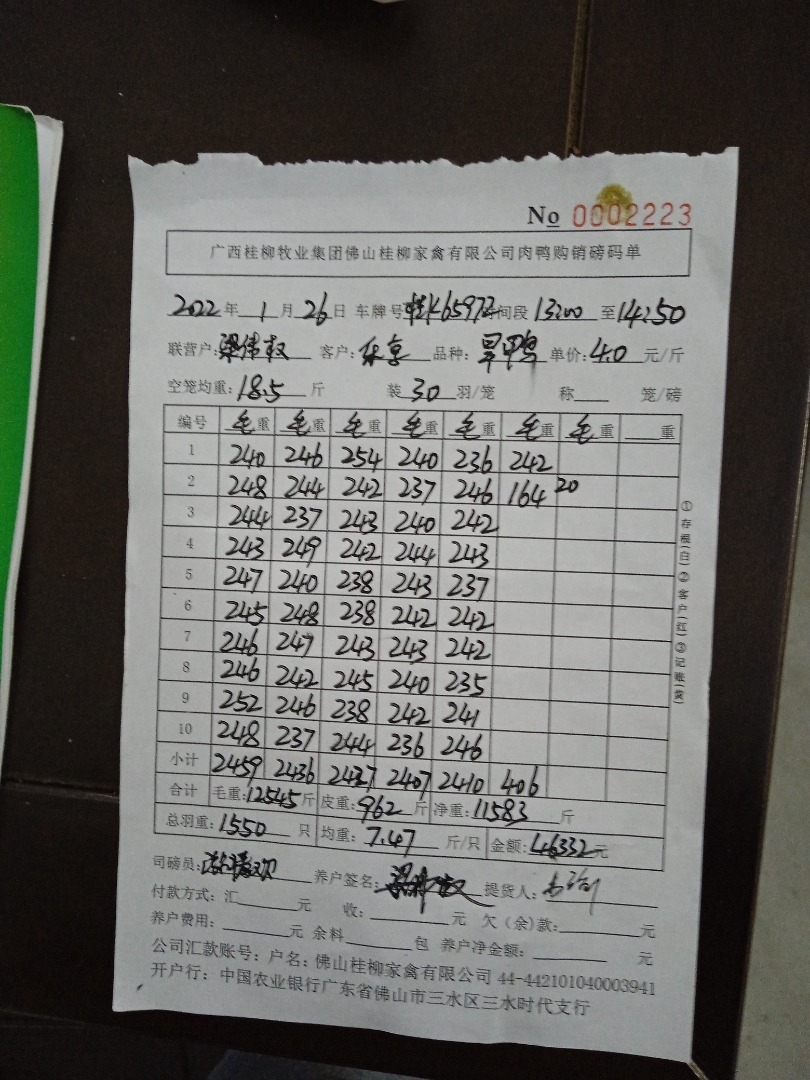 No 0002223
广西桂柳牧业集团佛山桂柳家禽有限公司肉鸭购销磅码单
2022年1月26日 车牌号桂K65972时间段13:00至14:50
联营户:梁伟权 客户: 品种:旱鸭 单价:4.0元/斤
空笼均重:18.5斤 装30羽/笼 称 笼/磅
编号 毛重 毛重 毛重 毛重 毛重 毛重 毛重 重
1 240 246 254 240 236 242
2 248 244 242 237 246 164 20
3 244 237 243 240 242
4 243 249 242 244 243
5 247 240 238 243 237
6 245 248 238 242 242
7 246 247 243 243 242
8 246 242 245 240 235
9 252 246 238 242 241
10 248 237 244 236 246
小计 2459 2436 2427 2407 2410 406
合计 毛重:12545斤 皮重:962斤 净重:11583斤
总羽重:1550只 均重:7.47斤/只 金额:46332元
司磅员: 养户签名:梁伟权 提货人:
付款方式:汇 元 收: 元 欠(余)款: 元
养户费用: 元 余料 包 养户净金额: 元
公司汇款账号:户名:佛山桂柳家禽有限公司 44-442101040003941
开户行:中国农业银行广东省佛山市三水区三水时代支行
①存根(白)②客户(红)③记账(黄)